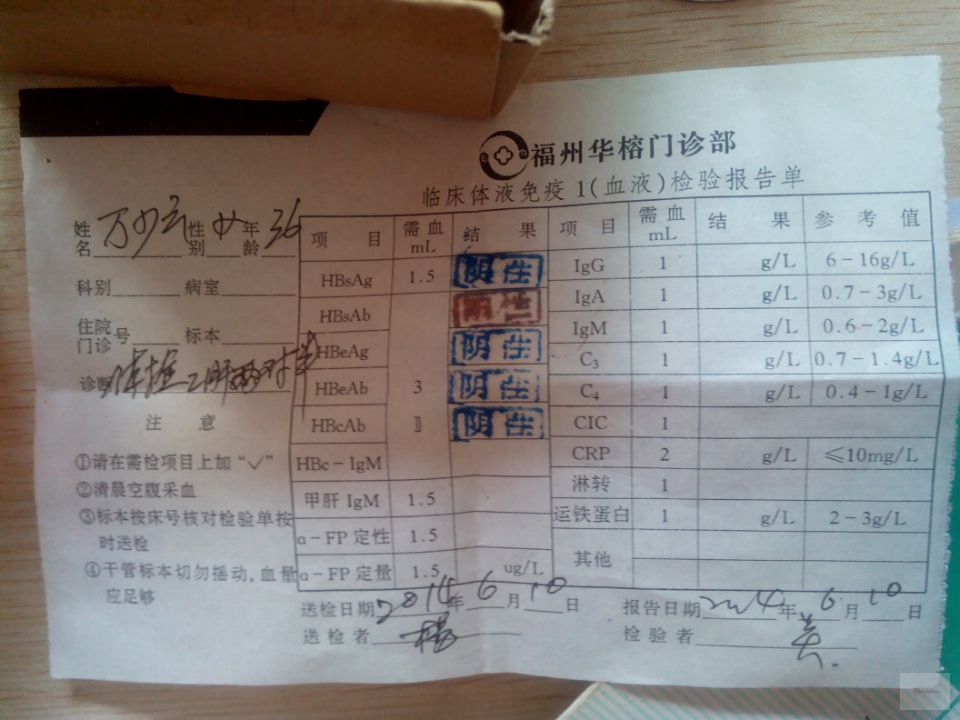 福州华榕门诊部
临床体液免疫1(血液)检验报告单
姓名 性别 女 年龄 36
科别 病室
住院门诊号 标本
诊断 乙肝两对半
注 意
①请在需检项目上加“√”
②清晨空腹采血
③标本按床号核对检验单按
时送检
④干管标本切勿摇动,血量
应足够
项 目 需血mL 结 果 项 目 需血mL 结 果 参 考 值
HBsAg 1.5 阴性 IgG 1 g/L 6-16g/L
HBsAb 阳性 IgA 1 g/L 0.7-3g/L
HBeAg 阴性 IgM 1 g/L 0.6-2g/L
C₃ 1 g/L 0.7-1.4g/L
HBeAb 3 阴性 C₄ 1 g/L 0.4-1g/L
HBcAb 阴性 CIC 1
HBc-IgM CRP 2 g/L ≤10mg/L
甲肝 IgM 1.5 淋转 1
α-FP定性 1.5 运铁蛋白 1 g/L 2-3g/L
α-FP定量 1.5 ug/L 其他
送检日期 2014年6月10日 报告日期 2014年6月10日
送检者 检验者